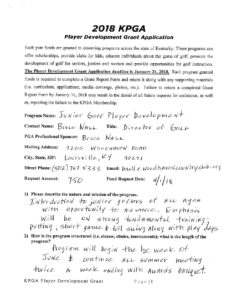 2018 KPGA
Player Development Grant Application
Each year funds are granted to deserving programs across the state of Kentucky. These programs can
offer scholarships, provide visits for kids, educate individuals about the game of golf, promote the
development of golf for seniors, juniors and women and provide opportunities for golf instruction.
The Player Development Grant Application deadline is January 31, 2018. Each program granted
funds is required to complete a Grant Report Form and return it along with any supporting materials
(i.e. curriculum, applications, media coverage, photos, etc.). Failure to return a completed Grant
Report Form by January 31, 2018 may result in the denial of all future requests for assistance, as well
as, reporting the failure to the KPGA Membership.
Program Name: Junior Golf Player Development
Contact Name: Bruce Nall Title: Director of Golf
PGA Professional Sponsor: Bruce Nall
Mailing Address: 7200 Woodhaven Road
City, State, ZIP: Louisville, KY 40291
Street (502) 767 5333 Email:
Request Amount: 750 Fund Request Date: 4/1/18
1) Please describe the nature and mission of the program.
Introduction to junior golfers of all ages
with opportunity to advance. Emphasis
will be on strong fundamental training;
putting, short game & full swing along with play days
2) How is the program structured (i.e. classes, clinics, tournaments); what is the length of the
program?
Program will begin the 1st week of
June & continue all summer meeting
twice a week ending with awards banquet.
KPGA Player Development Grant Page 18